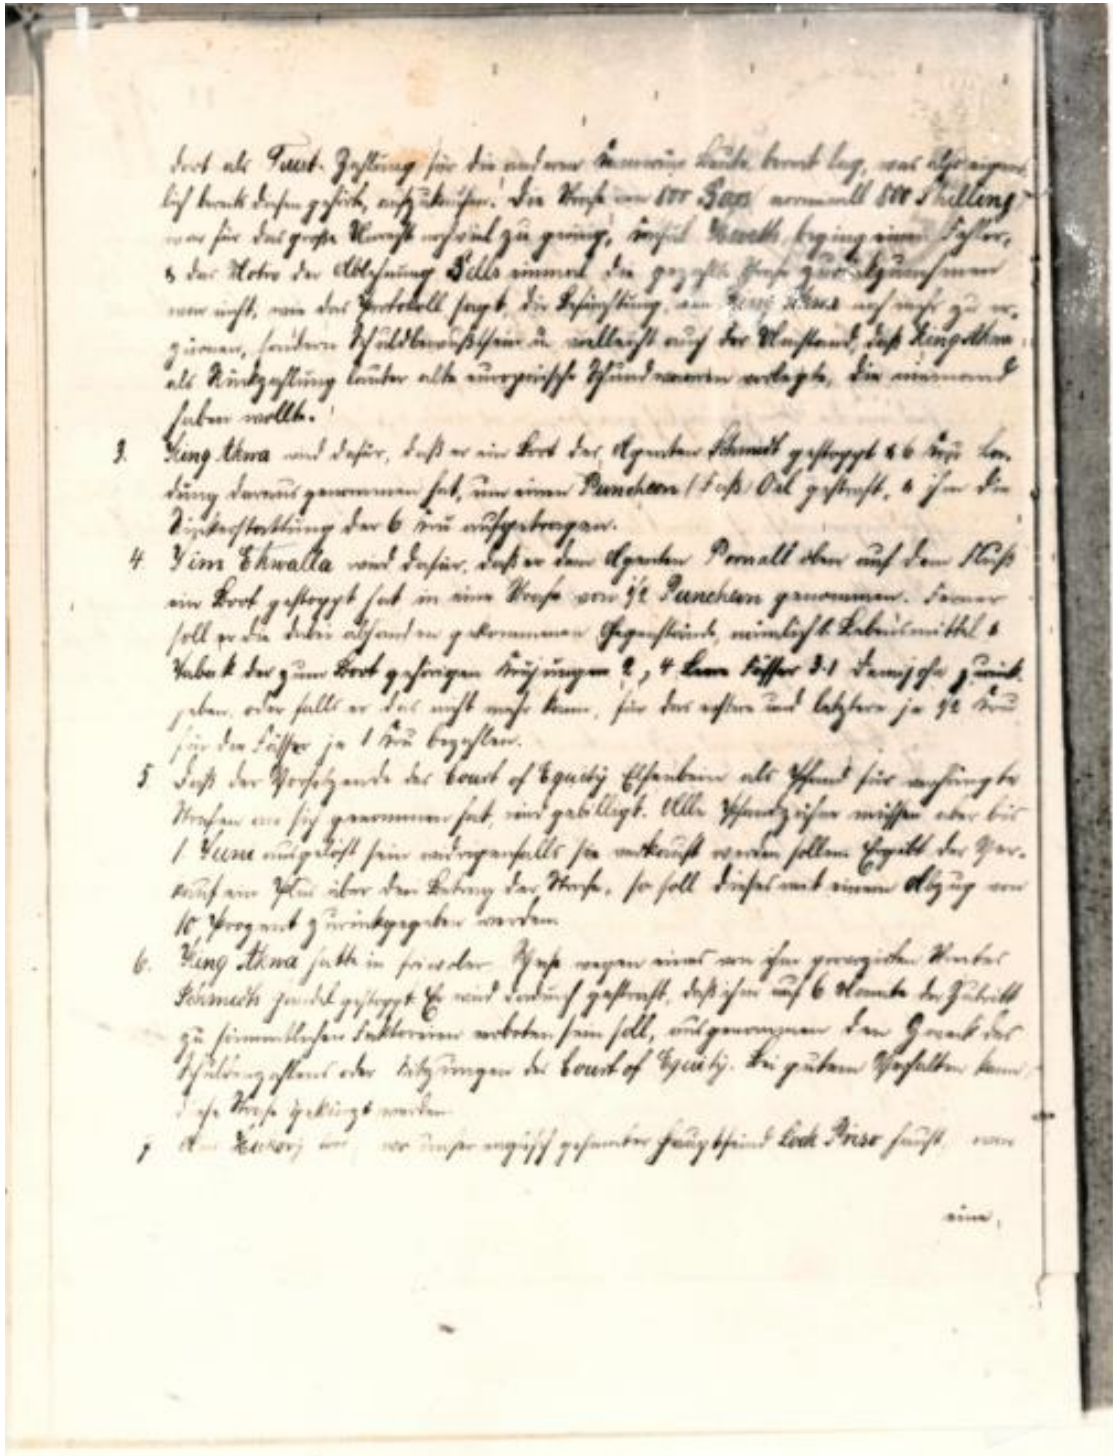 dort als Trust-Zahlung für die anderen Kamerun Leute bereit lag, was also eigent-
lich bereits diesen gehörte, aufzukaufen. Die Strafe von 800 Bars nominell 800 Shilling
war für das große Unrecht noch viel zu gering, beging einen Fehler,
& das Motiv der Ablehnung Bells einmal die gezahlte Strafe zurückzunehmen
war nicht, wie das Protokoll sagt, die Befürchtung, den King Akwa noch mehr zu er-
zürnen, sondern Schuldbewußtsein u. vielleicht auch der Umstand, daß King Akwa
als Rückzahlung lauter alte europäische Schundwaaren vorlegte, die niemand
haben wollte.
3. King Akwa wird dafür, daß er ein Boot des Agenten Schmidt gestoppt & 6 Kru La-
dung daraus genommen hat, um einen Puncheon (Faß) Oel gestraft, & ihm die
Rückerstattung der 6 Kru aufgetragen.
4. Jim Ekwalla wird dafür, daß er dem Agenten oben auf dem Fluß
ein Boot gestoppt hat in eine Strafe von 1/2 Puncheon genommen. Ferner
soll er die dabei abhanden gekommenen Gegenstände, nämlich Lebensmittel &
Taback der zum Boot gehörigen Krujungen, 4 Fässer & 1 Demijohn zurück-
geben, oder falls er das nicht mehr kann, für das erstere und letztere je 1/2 Kru
für die Fässer je 1 Kru bezahlen.
5. Daß der Vorsitzende des Court of Equity Elfenbein als Pfand für verhängte
Strafen an sich genommen hat, wird gebilligt. Alle Pfandzähne müssen aber bis
1. Juni ausgelöst sein widrigenfalls sie verkauft werden sollen. Ergibt der Ver-
kauf ein Plus über den Betrag der Strafe, so soll dieses mit einem Abzug von
10 Prozent zurückgegeben werden.
6. King Akwa hatte in frivoler Weise wegen eines von ihm provozirten Streites
Schmidts Handel gestoppt. Er wird dadurch gestraft, daß ihm auf 6 Monate der Zutritt
zu sämmtlichen Faktoreien verboten sein soll, ausgenommen den Zweck des
Schuldenzahlens oder Sitzungen des Court of Equity. Bei gutem Verhalten kann
diese Strafe gekürzt werden.
7. wo unser englisch gesinnter Hauptfeind Lock Priso haust, war
eine,